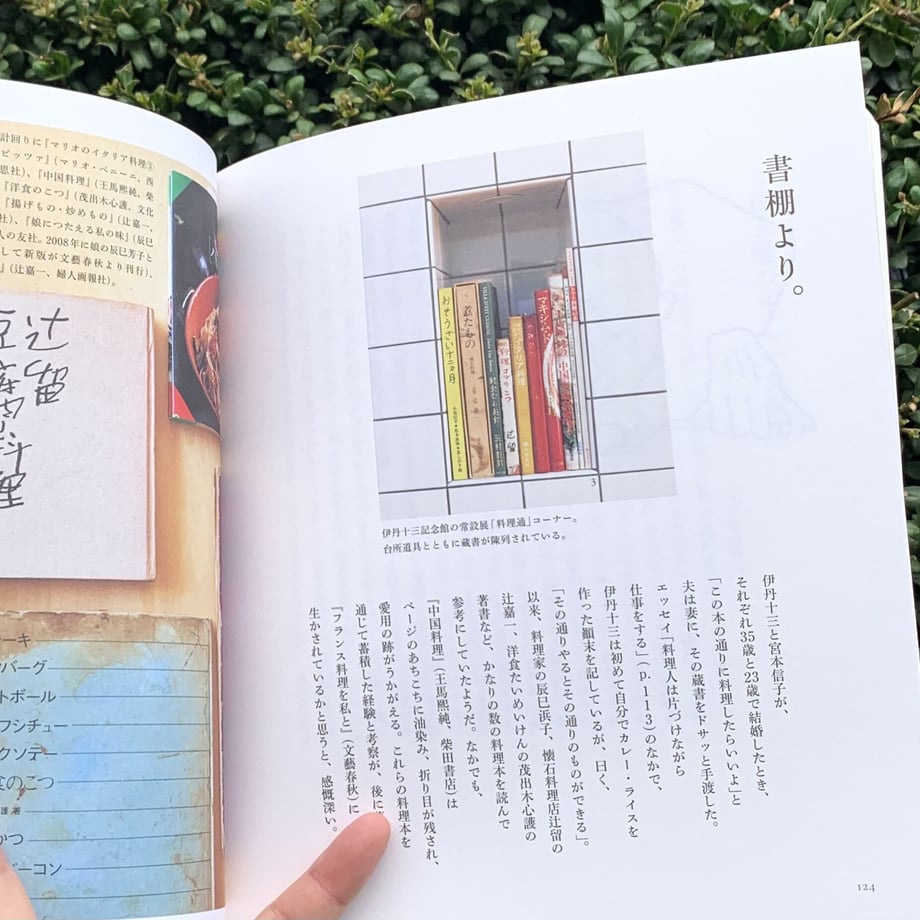 計回りに『マリオのイタリア料理③
ピッツァ』（マリオ・ベニーニ、西
思社）、『中国料理』（王馬熙純、柴
『洋食のこつ』（茂出木心護、文化
『揚げもの・炒めもの』（辻嘉一、
社）、『娘につたえる私の味』（辰巳
人の友社。2008年に娘の辰巳芳子と
して新版が文藝春秋より刊行）、
』（辻嘉一、婦人画報社）。
辻留
料理
ーキ
バーグ
トボール
フシチュー
クソテー
食のこつ
護 著
かつ
バーコン
書棚より。
おそうざい十二ヵ月
煮たもの
辻留
マキシム
中国
3
伊丹十三記念館の常設展「料理通」コーナー。
台所道具とともに蔵書が陳列されている。
伊丹十三と宮本信子が、
それぞれ35歳と23歳で結婚したとき、
「この本の通りに料理したらいいよ」と
夫は妻に、その蔵書をドサッと手渡した。
エッセイ「料理人は片づけながら
仕事をする」（p.113）のなかで、
伊丹十三は初めて自分でカレー・ライスを
作った顚末を記しているが、曰く、
「その通りやるとその通りのものができる」。
以来、料理家の辰巳浜子、懐石料理店辻留の
辻嘉一、洋食たいめいけんの茂出木心護の
著書など、かなりの数の料理本を読んで
参考にしていたようだ。なかでも、
『中国料理』（王馬熙純、柴田書店）は
ページのあちこちに油染み、折り目が残され、
愛用の跡がうかがえる。これらの料理本を
通じて蓄積した経験と考察が、後に
『フランス料理を私と』（文藝春秋）に
生かされているかと思うと、感慨深い。
124